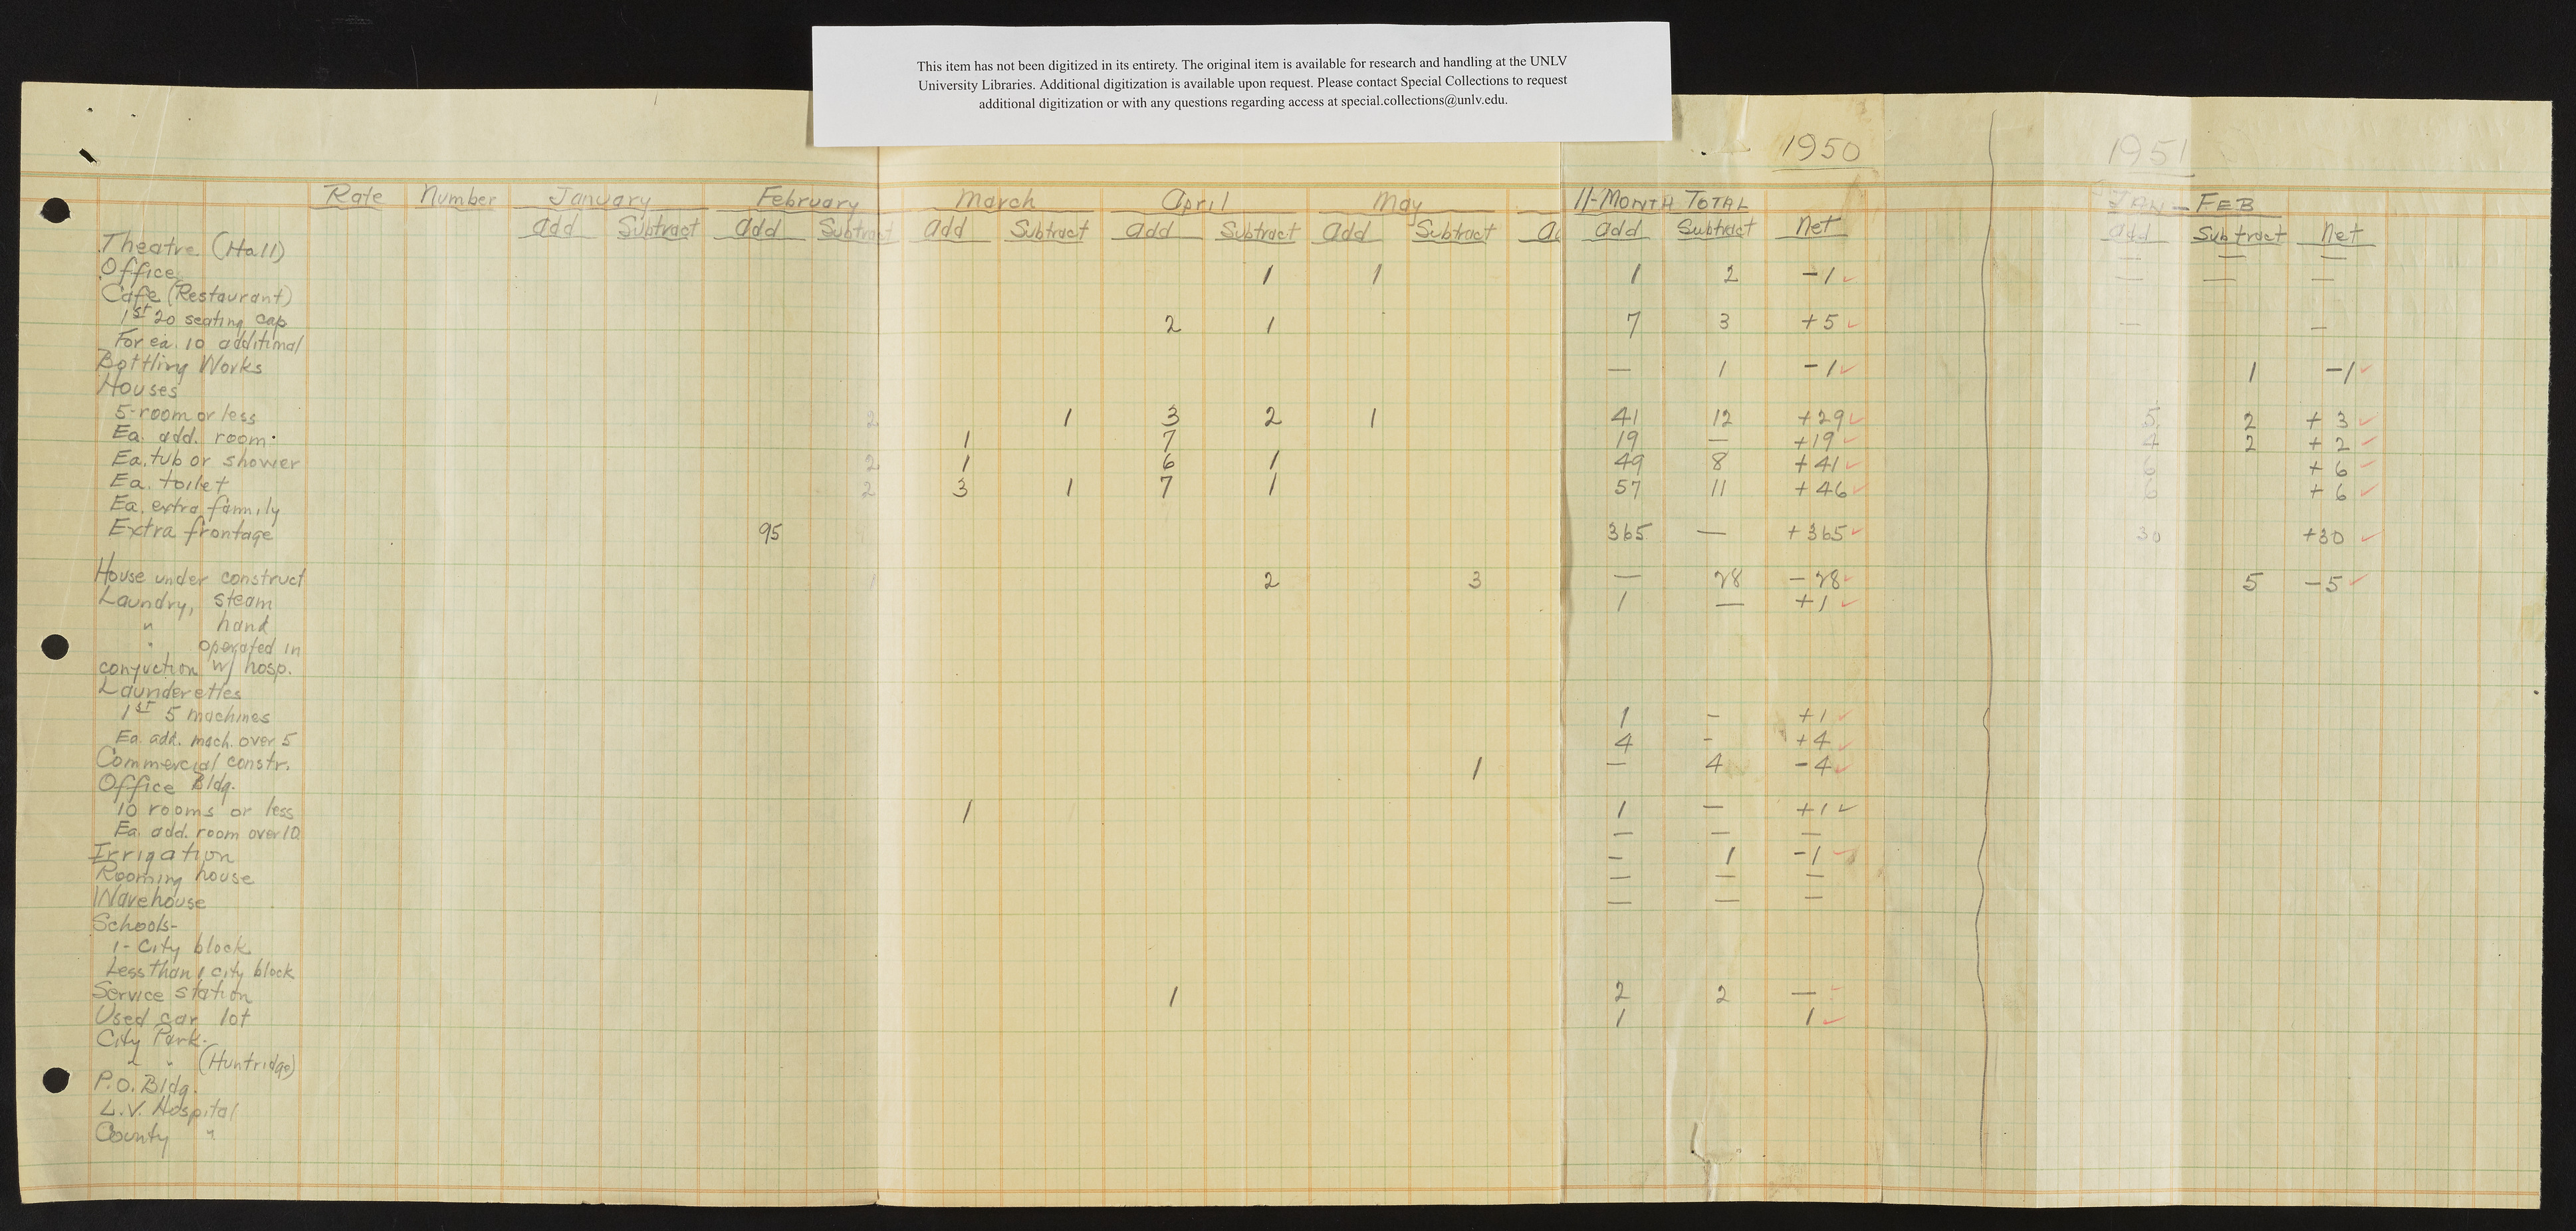 This item has not been digitized in its entirety. The original item is available for research and handling at the UNLV
University Libraries. Additional digitization is available upon request. Please contact Special Collections to request
additional digitization or with any questions regarding access at special.collections@unlv.edu.
1950 1951
Rate Number January February March April May 11-MONTH TOTAL JAN - FEB
add Subtract add Subtract add Subtract add Subtract add Subtract add Subtract Net add Subtract Net
Theatre (Hall) — — —
Office 1 1 1 2 -1 — — —
Cafe (Restaurant)
1st 20 seating cap 2 1 7 3 +5 — —
For ea. 10 additimal
Bottling Works — 1 -1 1 -1
Houses
5-room or less 2 1 3 2 1 41 12 +29 5 2 + 3
Ea. add. room. 1 7 19 — +19 4 2 + 2
Ea. tub or shower 2 1 6 1 49 8 + 41 6 + 6
Ea. toilet 2 3 1 7 1 57 11 + 46 6 + 6
Ea. extra family
Extra frontage 95 365 — + 365 30 +30
House under construct 1 2 3 — 28 - 28 5 -5
Laundry, steam 1 — +1
" hand
" operated in
conjuction w/ hosp.
Launderettes
1st 5 machines 1 - +1
Ea. add. mach. over 5 4 - +4
Commercial constr. 1 — 4 -4
Office Bldg.
10 rooms or less 1 1 — +1
Ea. add. room over 10 — — —
Irrigation - 1 -1
Rooming house — — —
Warehouse — — —
Schools-
1- City block
Less than 1 city block
Service station 1 2 2 —
Used car lot 1 1
City Park.
" " (Huntridge)
P.O. Bldg.
L.V. Hospital
County "